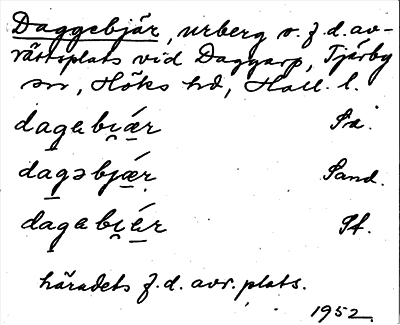 Daggebjär, urberg o. f.d. av-
rättsplats vid Daggarp, Tjärby
sn, Höks hd, Hall. l.
dagabi̯ǽr Sa.
dagəbjǽr Sand.
dagabi̯ér Pf.
häradets f.d. avr. plats.
1952.